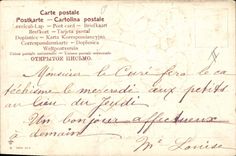 Carte postale
Postkarte — Cartolina postale
Levelező-Lap — Post card — Briefkort
Brefkort — Tarjeta postal
Dopisnice — Karta Korespondencyjna
Correspondenzkarte — Dopisnica
Weltpostverein
Union postale universelle — Unione postale universale
ОТКРЫТОЕ ПИСЬМО.
Monsieur le Curé fera le ca
téchisme le mercredi aux petits
au lieu du Jeudi
Un bonjour affectueux
à demain
Me Louise